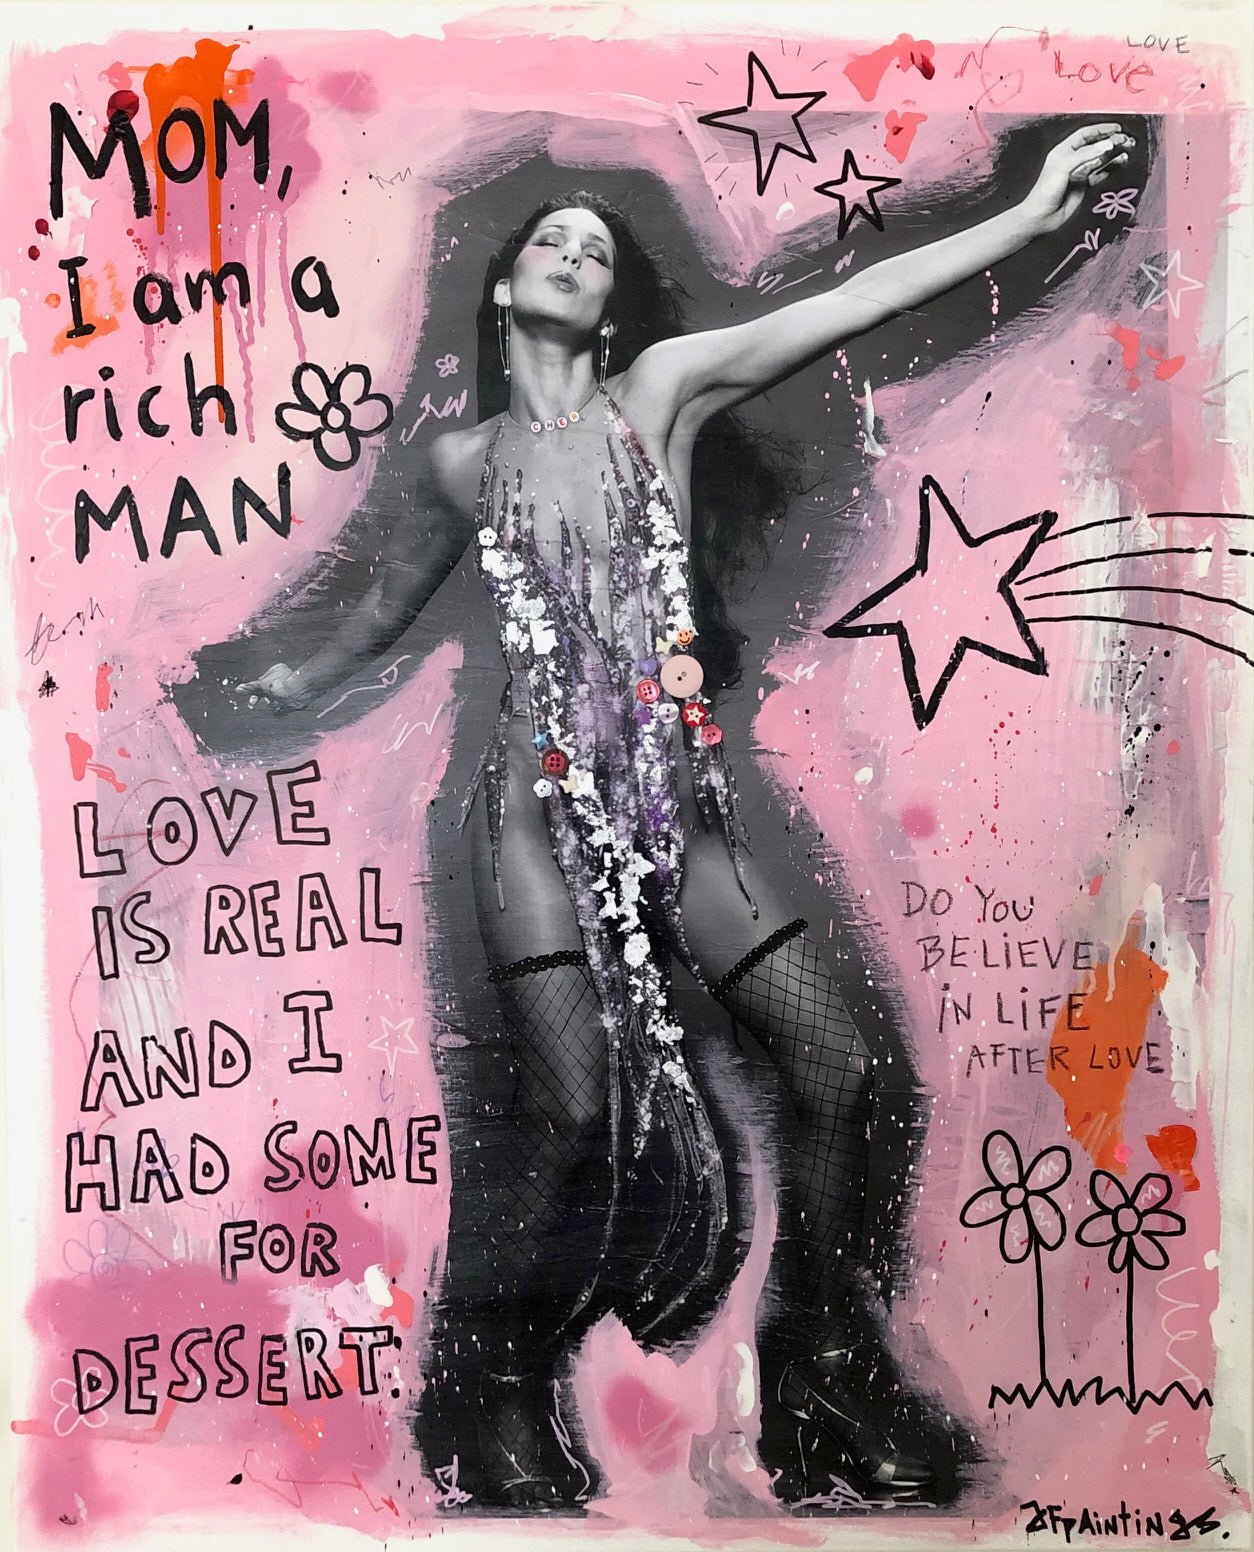 LOVE
Love
MOM,
I am a
rich
MAN
CHER
LOVE
IS REAL
AND I
HAD SOME
FOR
DESSERT.
DO YOU
BELIEVE
IN LIFE
AFTER LOVE
JFpAintinGs.